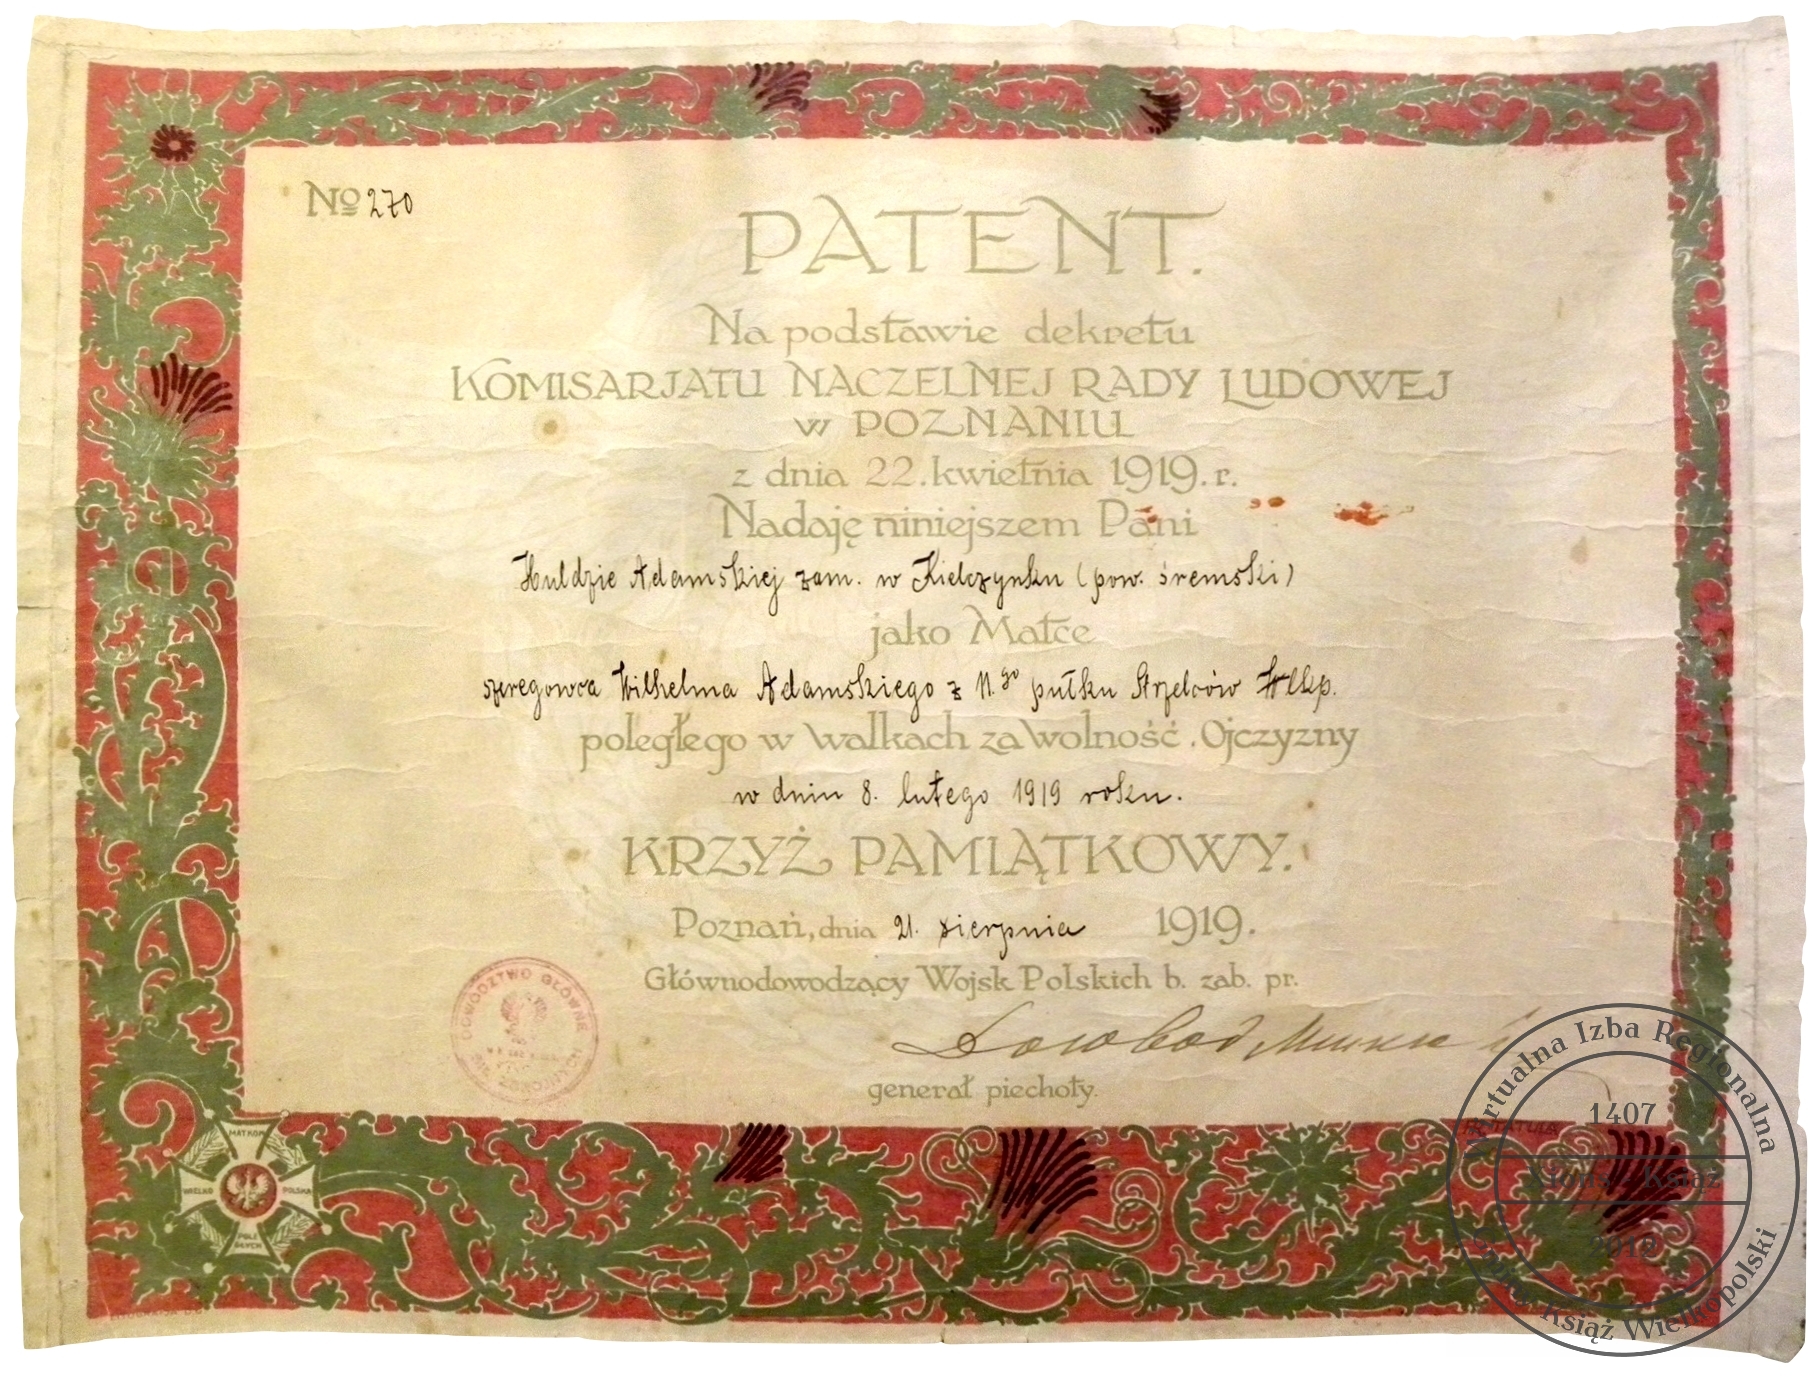 No 270
PATENT.
Na podstawie dekretu
KOMISARJATU NACZELNEJ RADY LUDOWEJ
w POZNANIU
z dnia 22. kwietnia 1919. r.
Nadaję niniejszem Pani
Huldzie Adamskiej zam. w Kielczynku (pow. śremski)
jako Matce
szeregowca Wilhelma Adamskiego z 11.go pułku Strzelców Wlkp.
poległego w walkach za Wolność Ojczyzny
w dniu 8. lutego 1919 roku.
KRZYŻ PAMIĄTKOWY.
Poznań, dnia 21. sierpnia 1919.
Głównodowodzący Wojsk Polskich b. zab. pr.
DOWÓDZTWO GŁÓWNE
SIŁ ZBROJNYCH
Dowbor Muśnicki
generał piechoty.
MATKOM
WIELKO POLSKA
POLE
GŁYCH
Wirtualna Izba Regionalna
1407
Xions - Książ
2018
Gminy Książ Wielkopolski